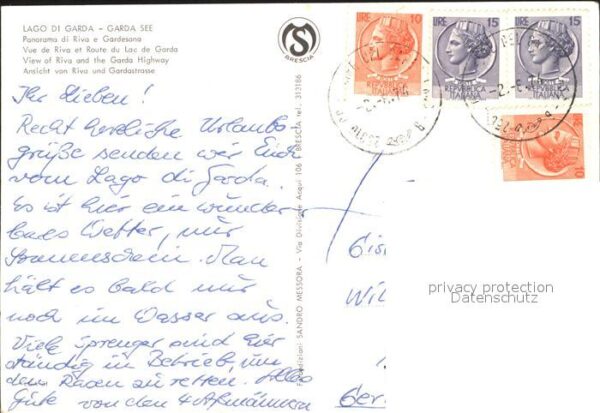 LAGO DI GARDA - GARDA SEE
Panorama di Riva e Gardesana
Vue de Riva et Route du Lac de Garda
View of Riva and the Garda Highway
Ansicht von Riva und Gardastrasse
SM
BRESCIA
LIRE 10
LIRE 15
LIRE 15
REPUBBLICA
ITALIANA
10
Ihr Lieben!
Recht herzliche Urlaubs-
grüße senden wir Euch
vom Lago di Garda.
Es ist hier ein wunder-
bares Wetter, nur
Sonnenschein. Man
hält es bald nur
noch im Wasser aus.
Viele Sprenger sind hier
ständig in Betrieb, um
den Rasen zu retten. Alles
Gute von den 4
edizioni SANDRO MESSORA - Via Divisione Acqui 106 - BRESCIA tel. 313186
privacy protection
Datenschutz